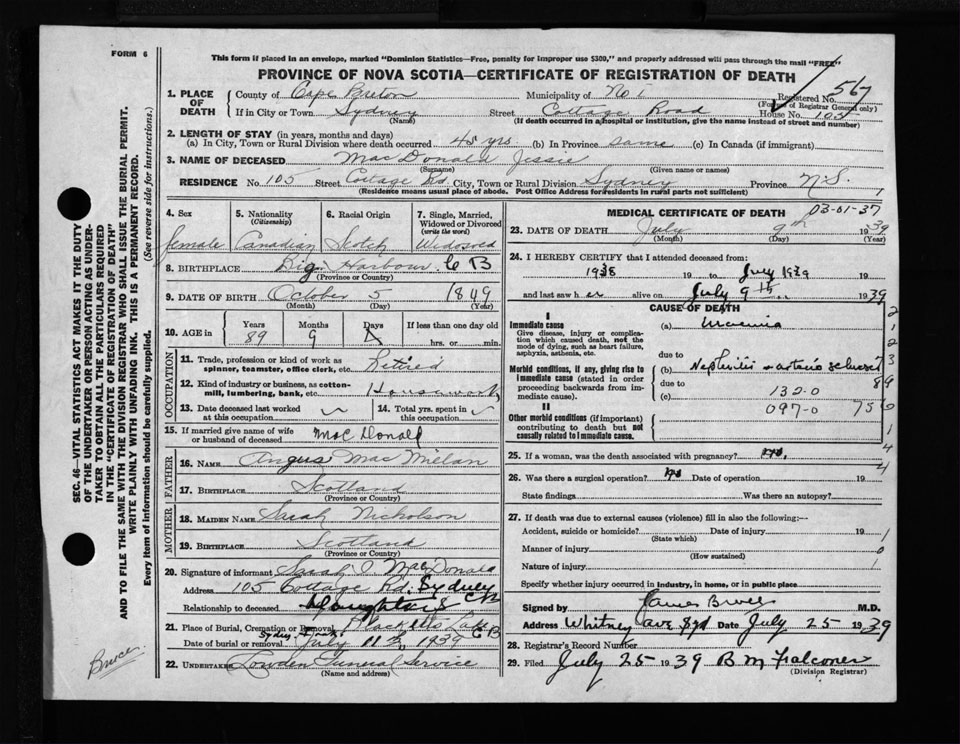 FORM 6
This form if placed in an envelope, marked "Dominion Statistics—Free, penalty for improper use $300," and properly addressed will pass through the mail "FREE"
PROVINCE OF NOVA SCOTIA—CERTIFICATE OF REGISTRATION OF DEATH
1. PLACE OF DEATH
County of Cape Breton Municipality of No 1 Registered No. 567
(For use of Registrar General only)
If in City or Town Sydney Street Cottage Road House No. 105
(Name) (If death occurred in a hospital or institution, give the name instead of street and number)
2. LENGTH OF STAY (in years, months and days)
(a) In City, Town or Rural Division where death occurred 45 yrs (b) In Province same (c) In Canada (if immigrant)
3. NAME OF DECEASED MacDonald Jessie
(Surname) (Given name or names)
RESIDENCE No. 105 Street Cottage Rd. City, Town or Rural Division Sydney Province N.S.
(Residence means usual place of abode. Post Office Address for residents in rural parts not sufficient) 1
4. Sex 5. Nationality 6. Racial Origin 7. Single, Married, Widowed or Divorced
(Citizenship) (write the word)
female Canadian Scotch Widowed
8. BIRTHPLACE Big Harbour C B
(Province or Country)
9. DATE OF BIRTH October 5 1849
(Month) (Day) (Year)
10. AGE in Years Months Days If less than one day old
89 9 4 hrs. or min.
OCCUPATION
11. Trade, profession or kind of work as spinner, teamster, office clerk, etc. Retired
12. Kind of industry or business, as cotton-mill, lumbering, bank, etc. Housework
13. Date deceased last worked at this occupation
14. Total yrs. spent in this occupation
15. If married give name of wife or husband of deceased MacDonald
FATHER
16. NAME Angus MacMillan
17. BIRTHPLACE Scotland
(Province or Country)
MOTHER
18. MAIDEN NAME Sarah Nicholson
19. BIRTHPLACE Scotland
(Province or Country)
20. Signature of informant Sarah MacDonald
Address 105 Cottage Rd. Sydney C B
Relationship to deceased Daughter
21. Place of Burial, Cremation or Removal Blacketts Lake C B
Date of burial or removal July 11th 1939
22. UNDERTAKER Lowden Funeral Service
(Name and address)
MEDICAL CERTIFICATE OF DEATH 03-01-37
23. DATE OF DEATH July 9th 1939
(Month) (Day) (Year)
24. I HEREBY CERTIFY that I attended deceased from:
1938 19 to July 1939
and last saw her alive on July 9th 1939
CAUSE OF DEATH
I
Immediate cause (a) Uraemia
Give disease, injury or complication which caused death, not the mode of dying, such as heart failure, asphyxia, asthenia, etc.
due to
Morbid conditions, if any, giving rise to immediate cause (stated in order proceeding backwards from immediate cause).
(b) Nephritis
due to
(c) 132-0
II
097-0
Other morbid conditions (if important) contributing to death but not causally related to immediate cause.
25. If a woman, was the death associated with pregnancy? no.
26. Was there a surgical operation? no Date of operation 19
State findings Was there an autopsy?
27. If death was due to external causes (violence) fill in also the following:—
Accident, suicide or homicide? Date of injury 19
(State which)
Manner of injury
(How sustained)
Nature of injury
Specify whether injury occurred in industry, in home, or in public place
Signed by James Bruce M.D.
Address Whitney ave Syd Date July 25 1939
28. Registrar's Record Number
29. Filed July 25 1939 B M Falconer
(Division Registrar)
SEC. 46—VITAL STATISTICS ACT MAKES IT THE DUTY
OF THE UNDERTAKER OR PERSON ACTING AS UNDER-
TAKER TO OBTAIN ALL THE PARTICULARS REQUIRED
IN THE "CERTIFICATE OF REGISTRATION OF DEATH"
AND TO FILE THE SAME WITH THE DIVISION REGISTRAR WHO SHALL ISSUE THE BURIAL PERMIT.
WRITE PLAINLY WITH UNFADING INK. THIS IS A PERMANENT RECORD.
Every item of information should be carefully supplied. (See reverse side for instructions.)
Bruce.